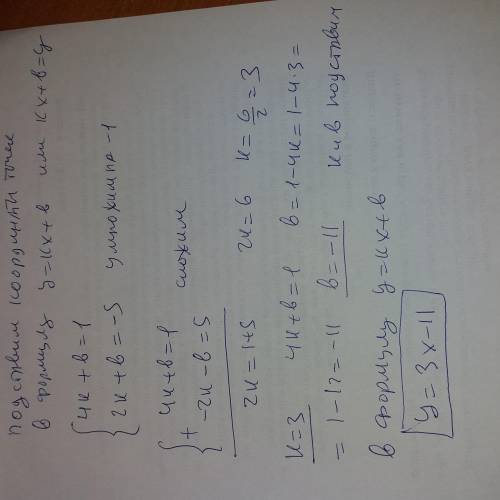 подставим координаты точек
в формулу y=кx+в или кx+в=y
{4к+в=1
2к+в=-5 умножим на -1
{+ 4к+в=1
-2к-в=5 сложим
2к=1+5 2к=6 к=6/2=3
к=3 4к+в=1 в=1-4к=1-4·3=
=1-12=-11 в=-11 к и в подставим
в формулу y=кx+в
y=3x-11